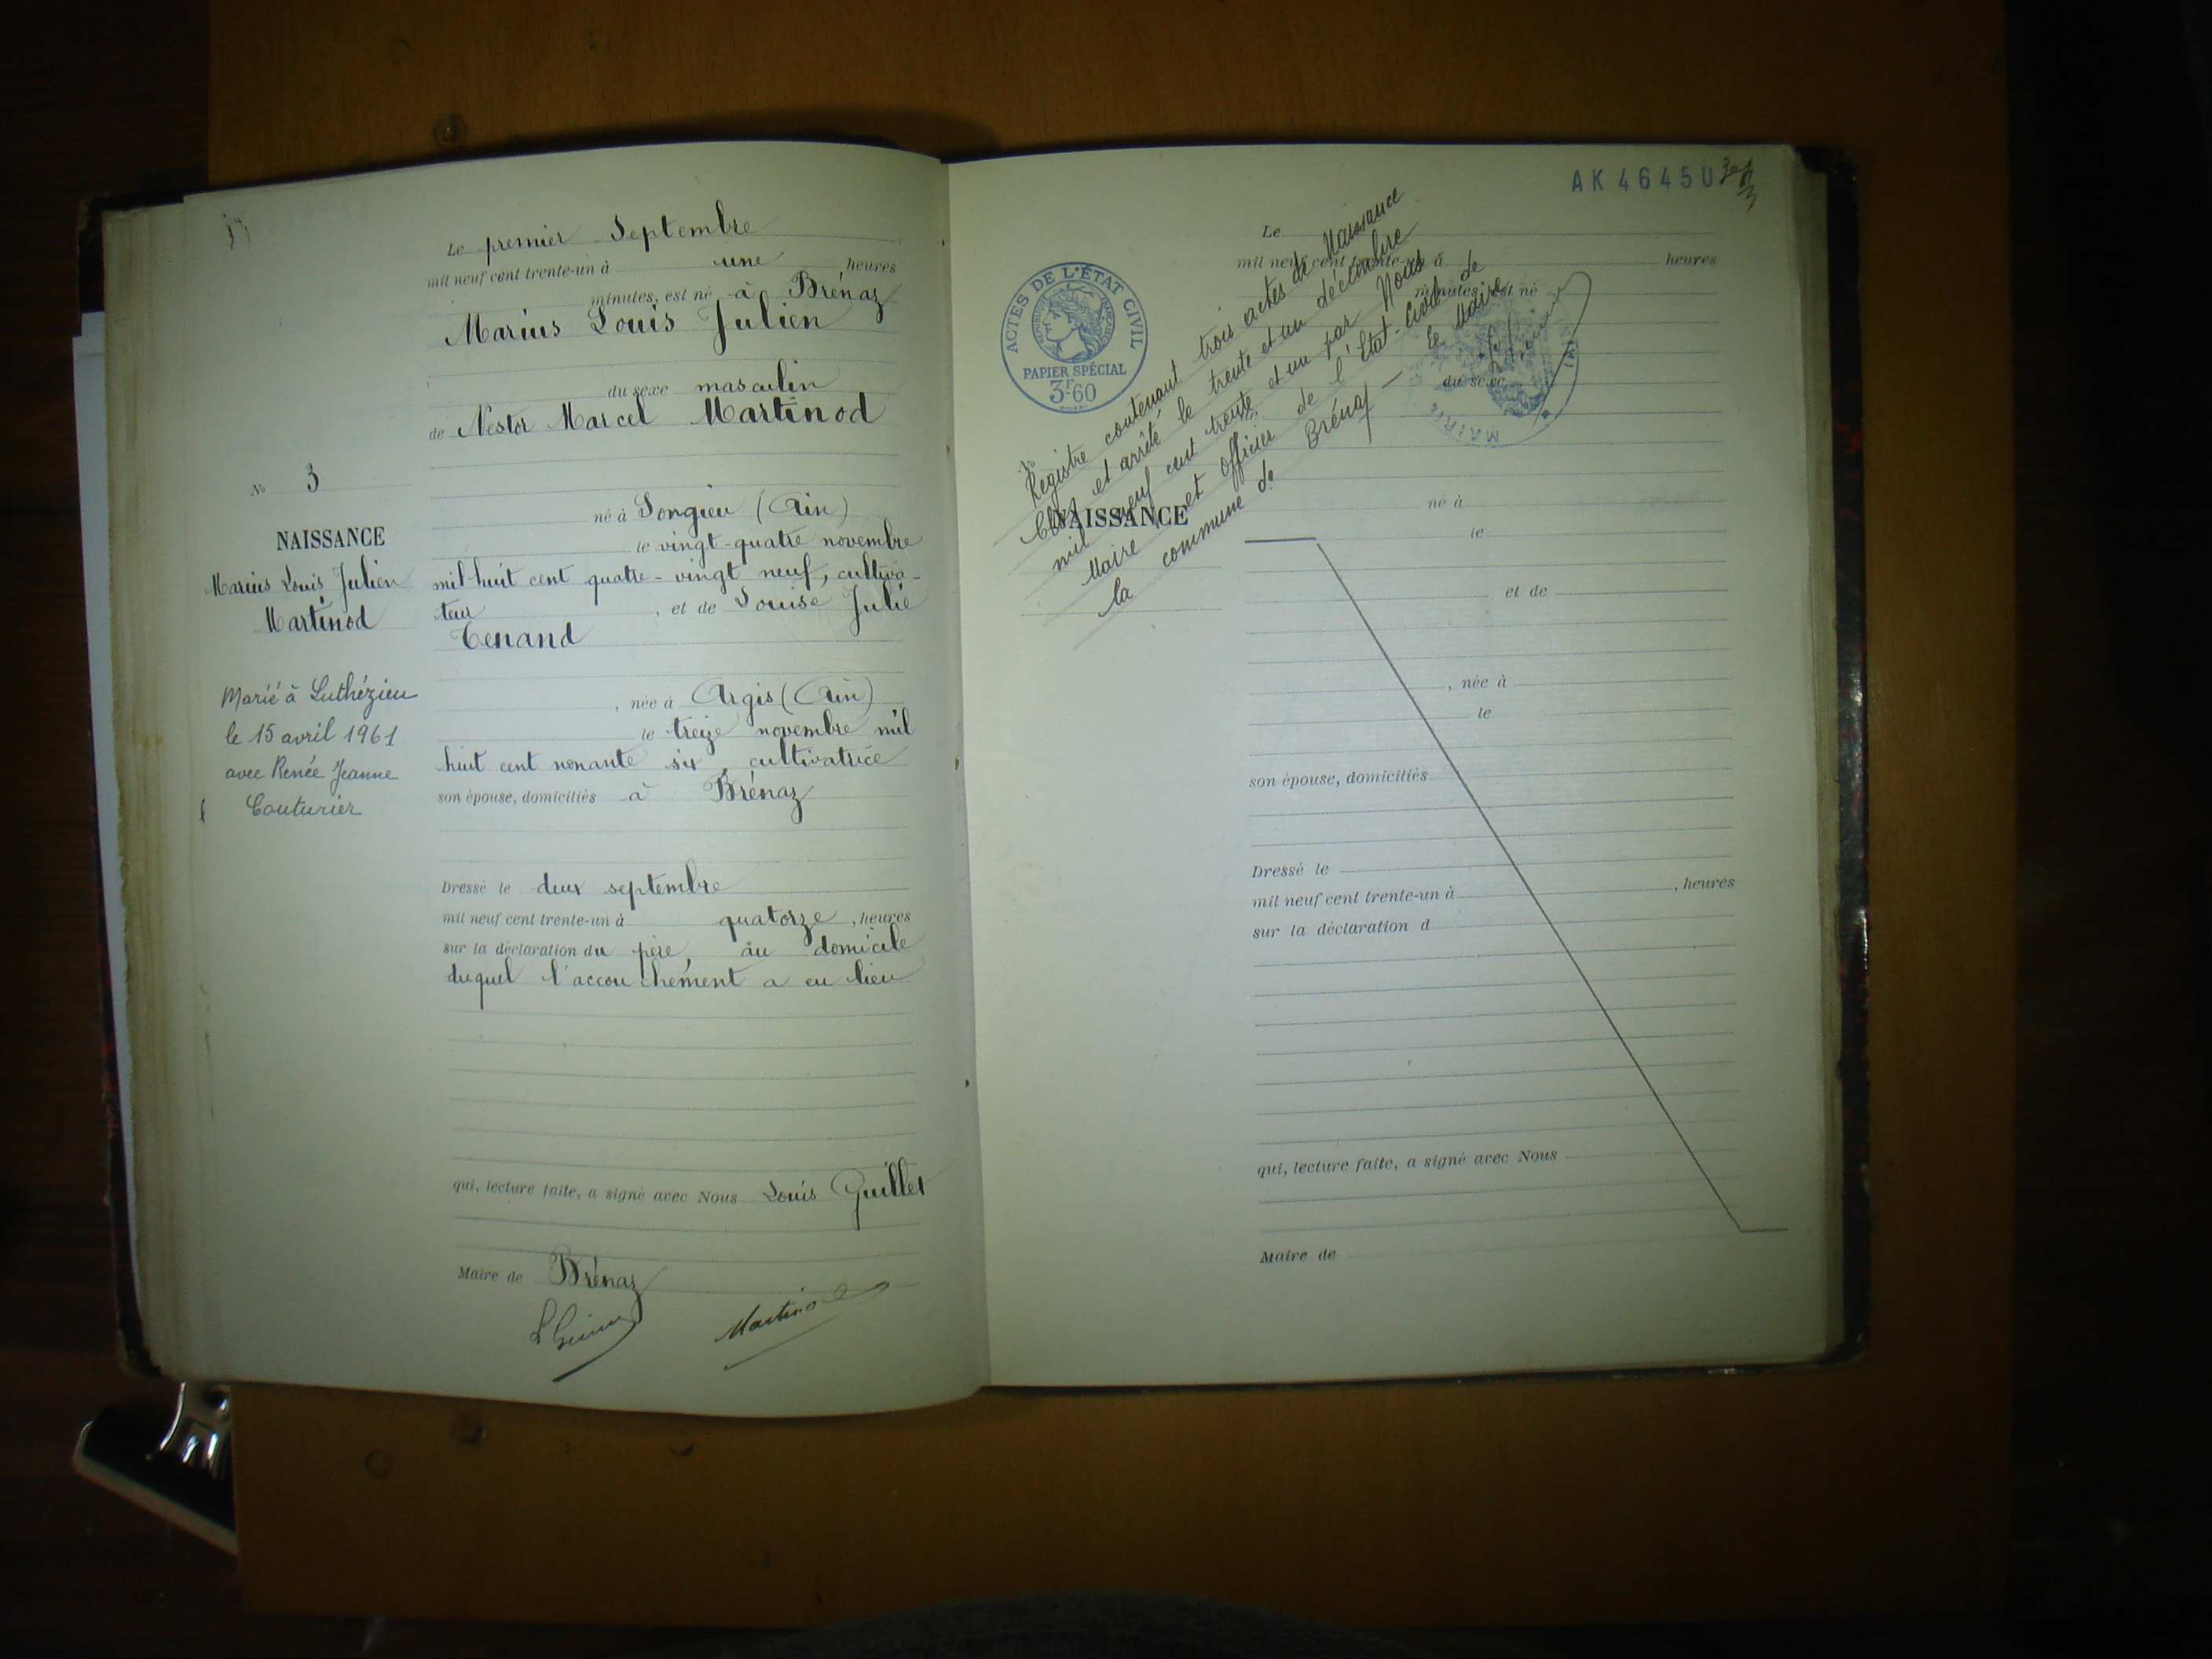 Le premier Septembre
mil neuf cent trente-un à une heures
minutes, est né à Brénaz
Marius Louis Julien
du sexe masculin
de Nestor Marcel Martinod
N° 3
NAISSANCE
Marius Louis Julien
Martinod
Marié à Luthézieu
le 15 avril 1961
avec Renée Jeanne
Couturier
né à Songieu (Ain)
le vingt-quatre novembre
mil huit cent quatre-vingt neuf, cultiva-
teur, et de Louise Julie
Tenand
, née à Argis (Ain)
le treize novembre mil
huit cent nonante six, cultivatrice
son épouse, domiciliés à Brénaz
Dressé le deux septembre
mil neuf cent trente-un à quatorze, heures
sur la déclaration du père, au domicile
duquel l'accouchement a eu lieu
qui, lecture faite, a signé avec Nous Louis Guillet
Maire de Brénaz
Martinod
AK 46450
Le
mil neuf cent trente-un à heures
minutes, est né
ACTES DE L'ÉTAT CIVIL
RÉPUBLIQUE FRANÇAISE
PAPIER SPÉCIAL
3F60
Registre contenant trois actes de Naissance
Clos et arrêté le trente et un décembre
mil neuf cent trente et un par Nous
Maire et officier de l'Etat-Civil de
la commune de Brénaz — Le Maire
MAIRIE
du sexe
N°
NAISSANCE
né à
le
et de
, née à
le
son épouse, domiciliés
Dressé le
mil neuf cent trente-un à , heures
sur la déclaration d
qui, lecture faite, a signé avec Nous
Maire de